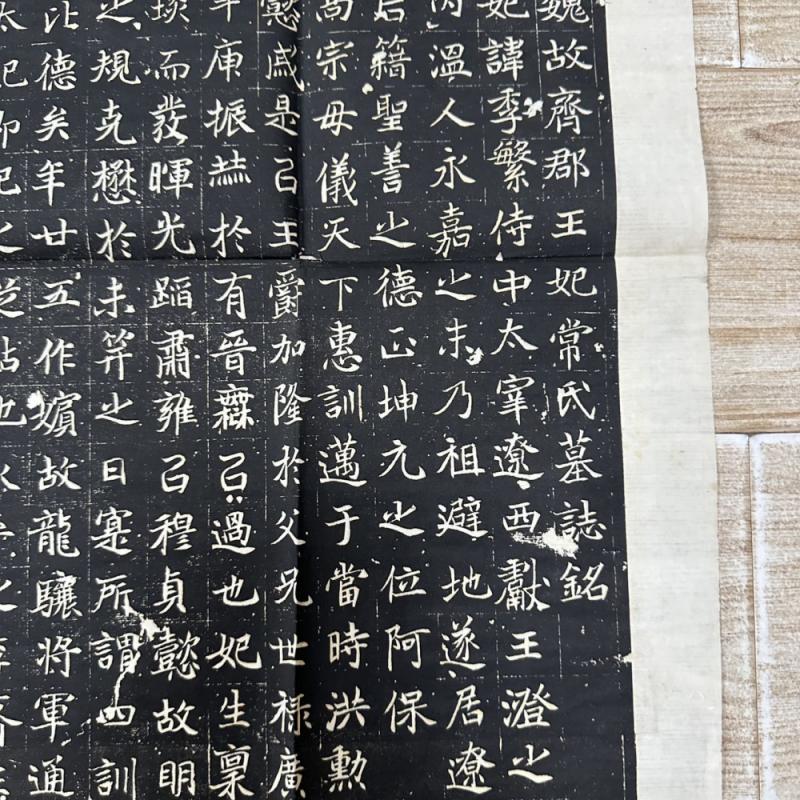 魏故齊郡王妃常氏墓誌銘
妃諱季繁侍中太宰遼西獻王澄之
內溫人永嘉之末乃祖避地遂居遼
后籍聖善之德正坤元之位阿保
高宗母儀天下惠訓邁于當時洪勳
懿戚是以王爵加隆於父兄世祿廣
庾振於有晉無以過也妃生稟
琰而發暉光蹈肅雍以穆貞懿故明
之規克懋於未笄之日寔所謂四訓
比德矣年廿五作嬪故龍驤將軍通
太妃即妃之姑也